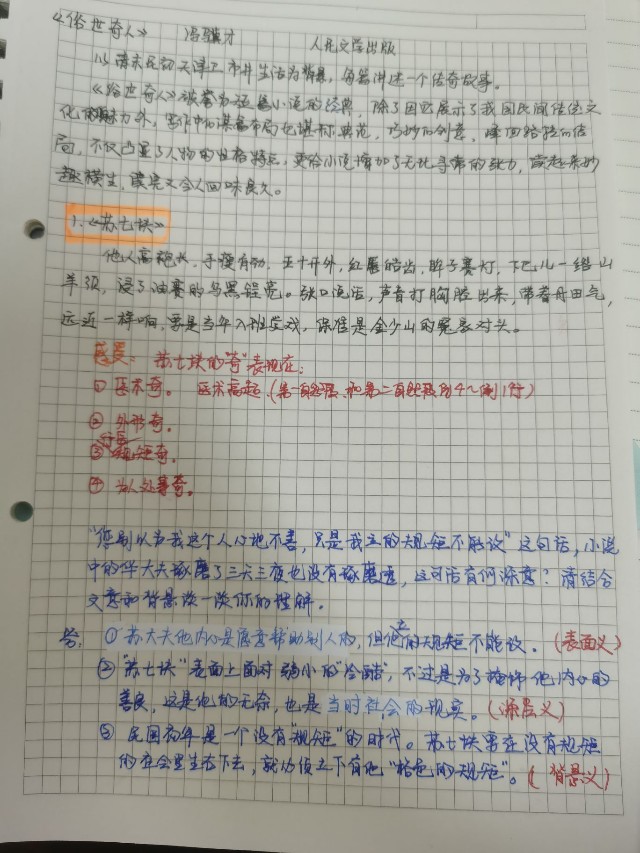 《俗世奇人》 冯骥才 人民文学出版
以清末民初天津卫市井生活为背景，每篇讲述一个传奇故事。
《俗世奇人》被誉为短篇小说的经典，除了因它展示了我国民间传统文
化的魅力外，写作中的谋篇布局也堪称典范，巧妙的创意，峰回路转的结
局，不仅凸显了人物的性格特点，更给小说增加了无比寻常的张力，读起来妙
趣横生，读完又令人回味良久。
1.《苏七块》
他人高袍长，手瘦有劲，五十开外，红唇皓齿，眸子赛灯，下巴儿一绺山
羊须，浸了油赛的乌黑锃亮。张口说话，声音打胸腔出来，带着丹田气，
远近一样响，要是当年入班学戏，保准是金少山的冤家对头。
苏七块的"奇"表现在：
① 医术奇。 医术高超.(第一自然段 和第二自然段的4～倒1行)
② 外形奇。
③ 规矩奇。
④ 为人处事奇。
"您别以为我这个人心地不善，只是我立的规矩不能改"这句话，小说
中的华大夫琢磨了三天三夜也没有琢磨透，这句话有何深意？请结合
文意和背景谈一谈你的理解。
答：①苏大夫他内心是愿意帮助别人的，但他立的规矩不能改。(表面义)
②"苏七块"表面上面对弱小的"冷酷"，不过是为了掩饰他内心的
善良，这是他的无奈，也是当时社会的现实。(深层义)
③ 民国初年是一个没有"规矩"的时代。苏七块要在没有规矩
的社会里生存下去，就必须立下有他"特色的规矩"。( 背景义)